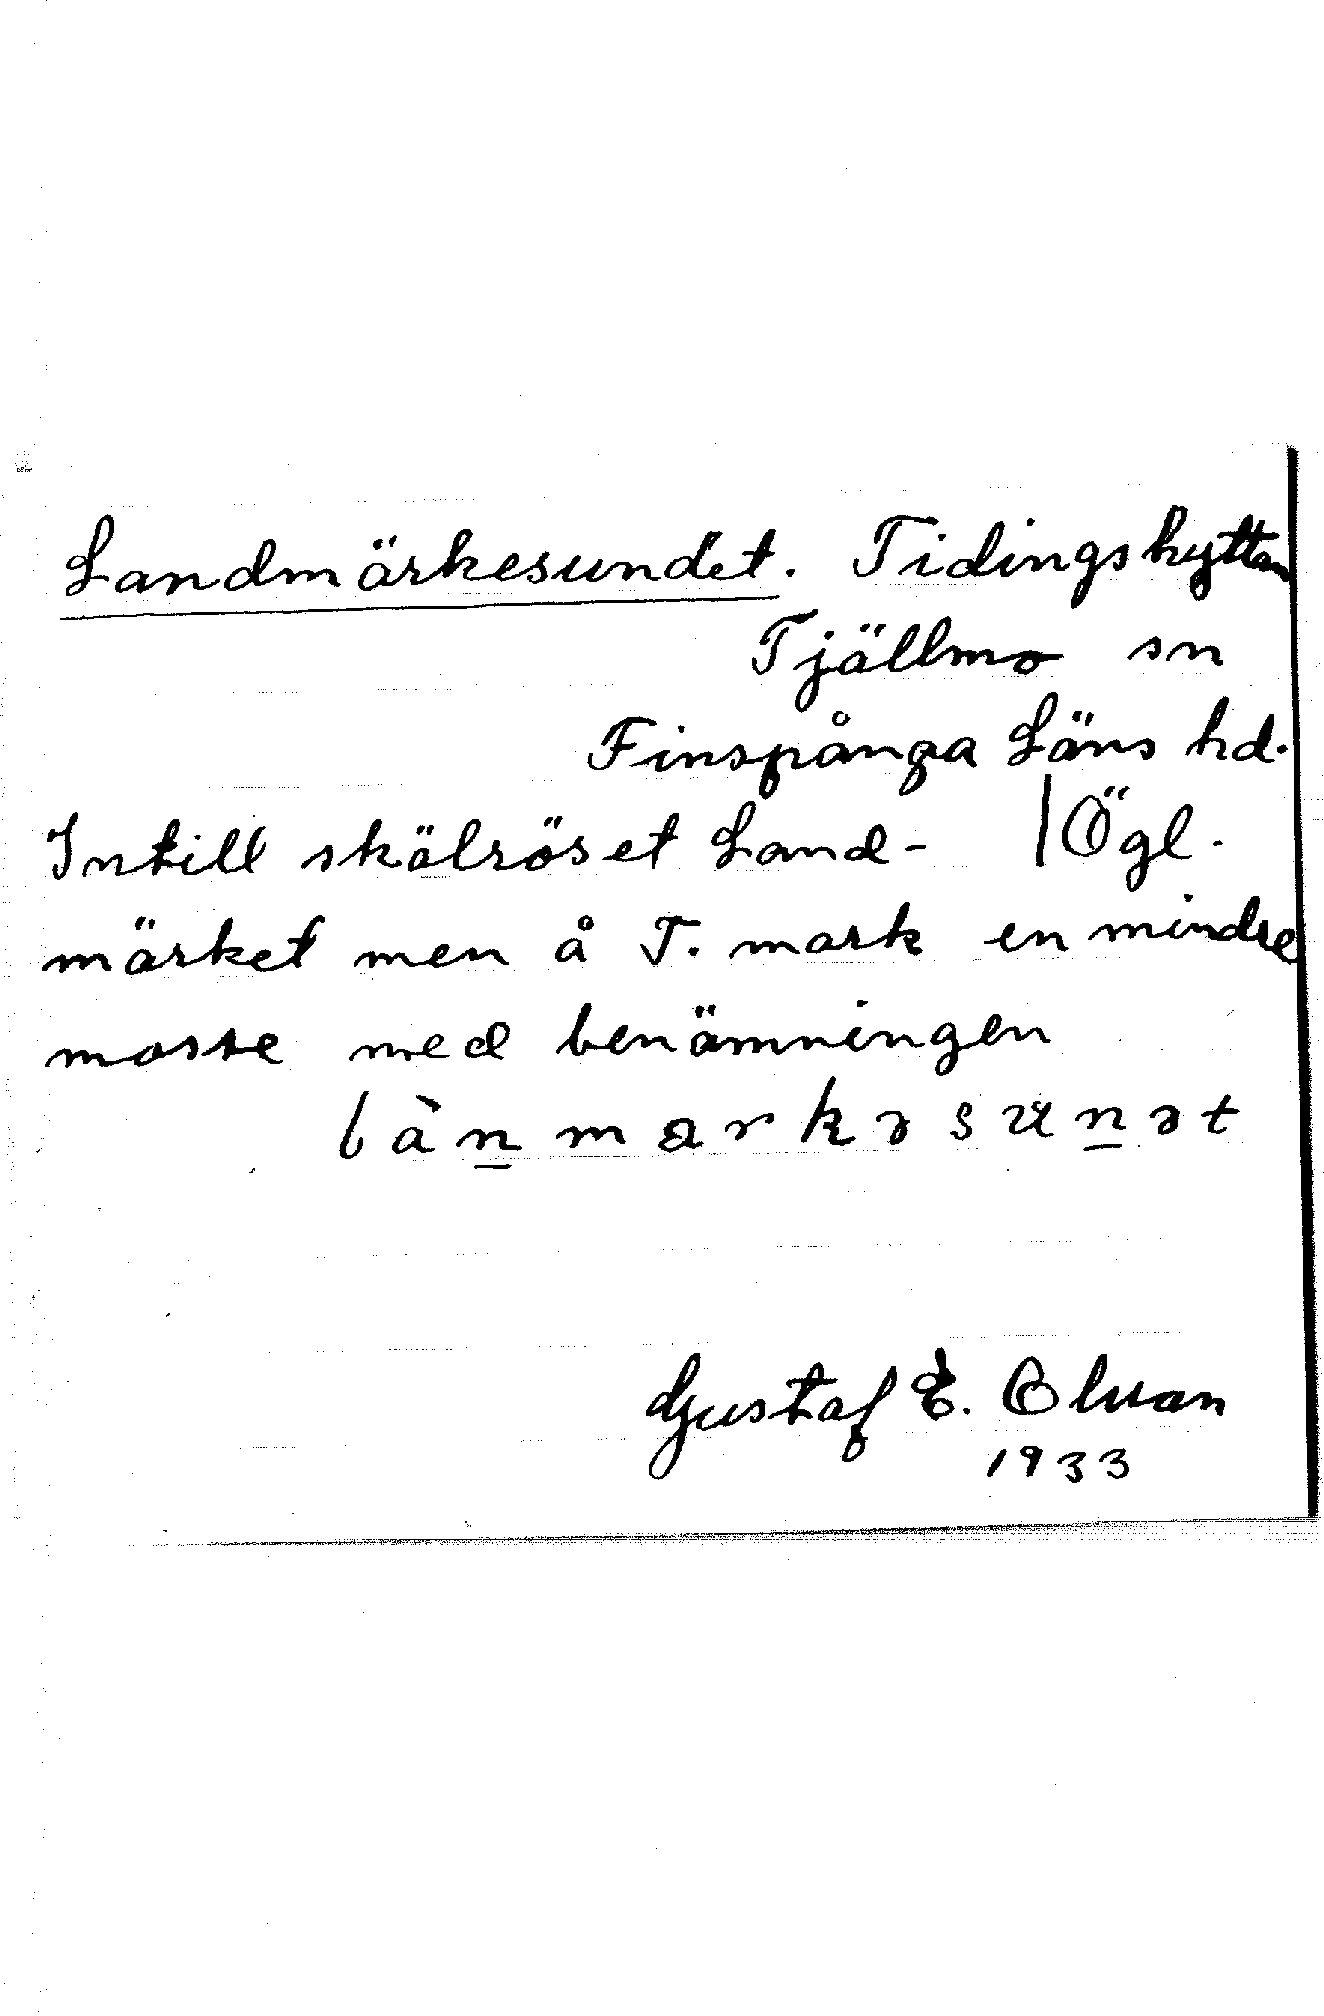 Landmärkesundet. Tidingshyttan
Tjällmo sn
Finspånga Läns hd.
Intill skälröset Land- | Ögl.
märket men å T. mark en mindre
mosse med benämningen
Gustaf E. Olvan
1933